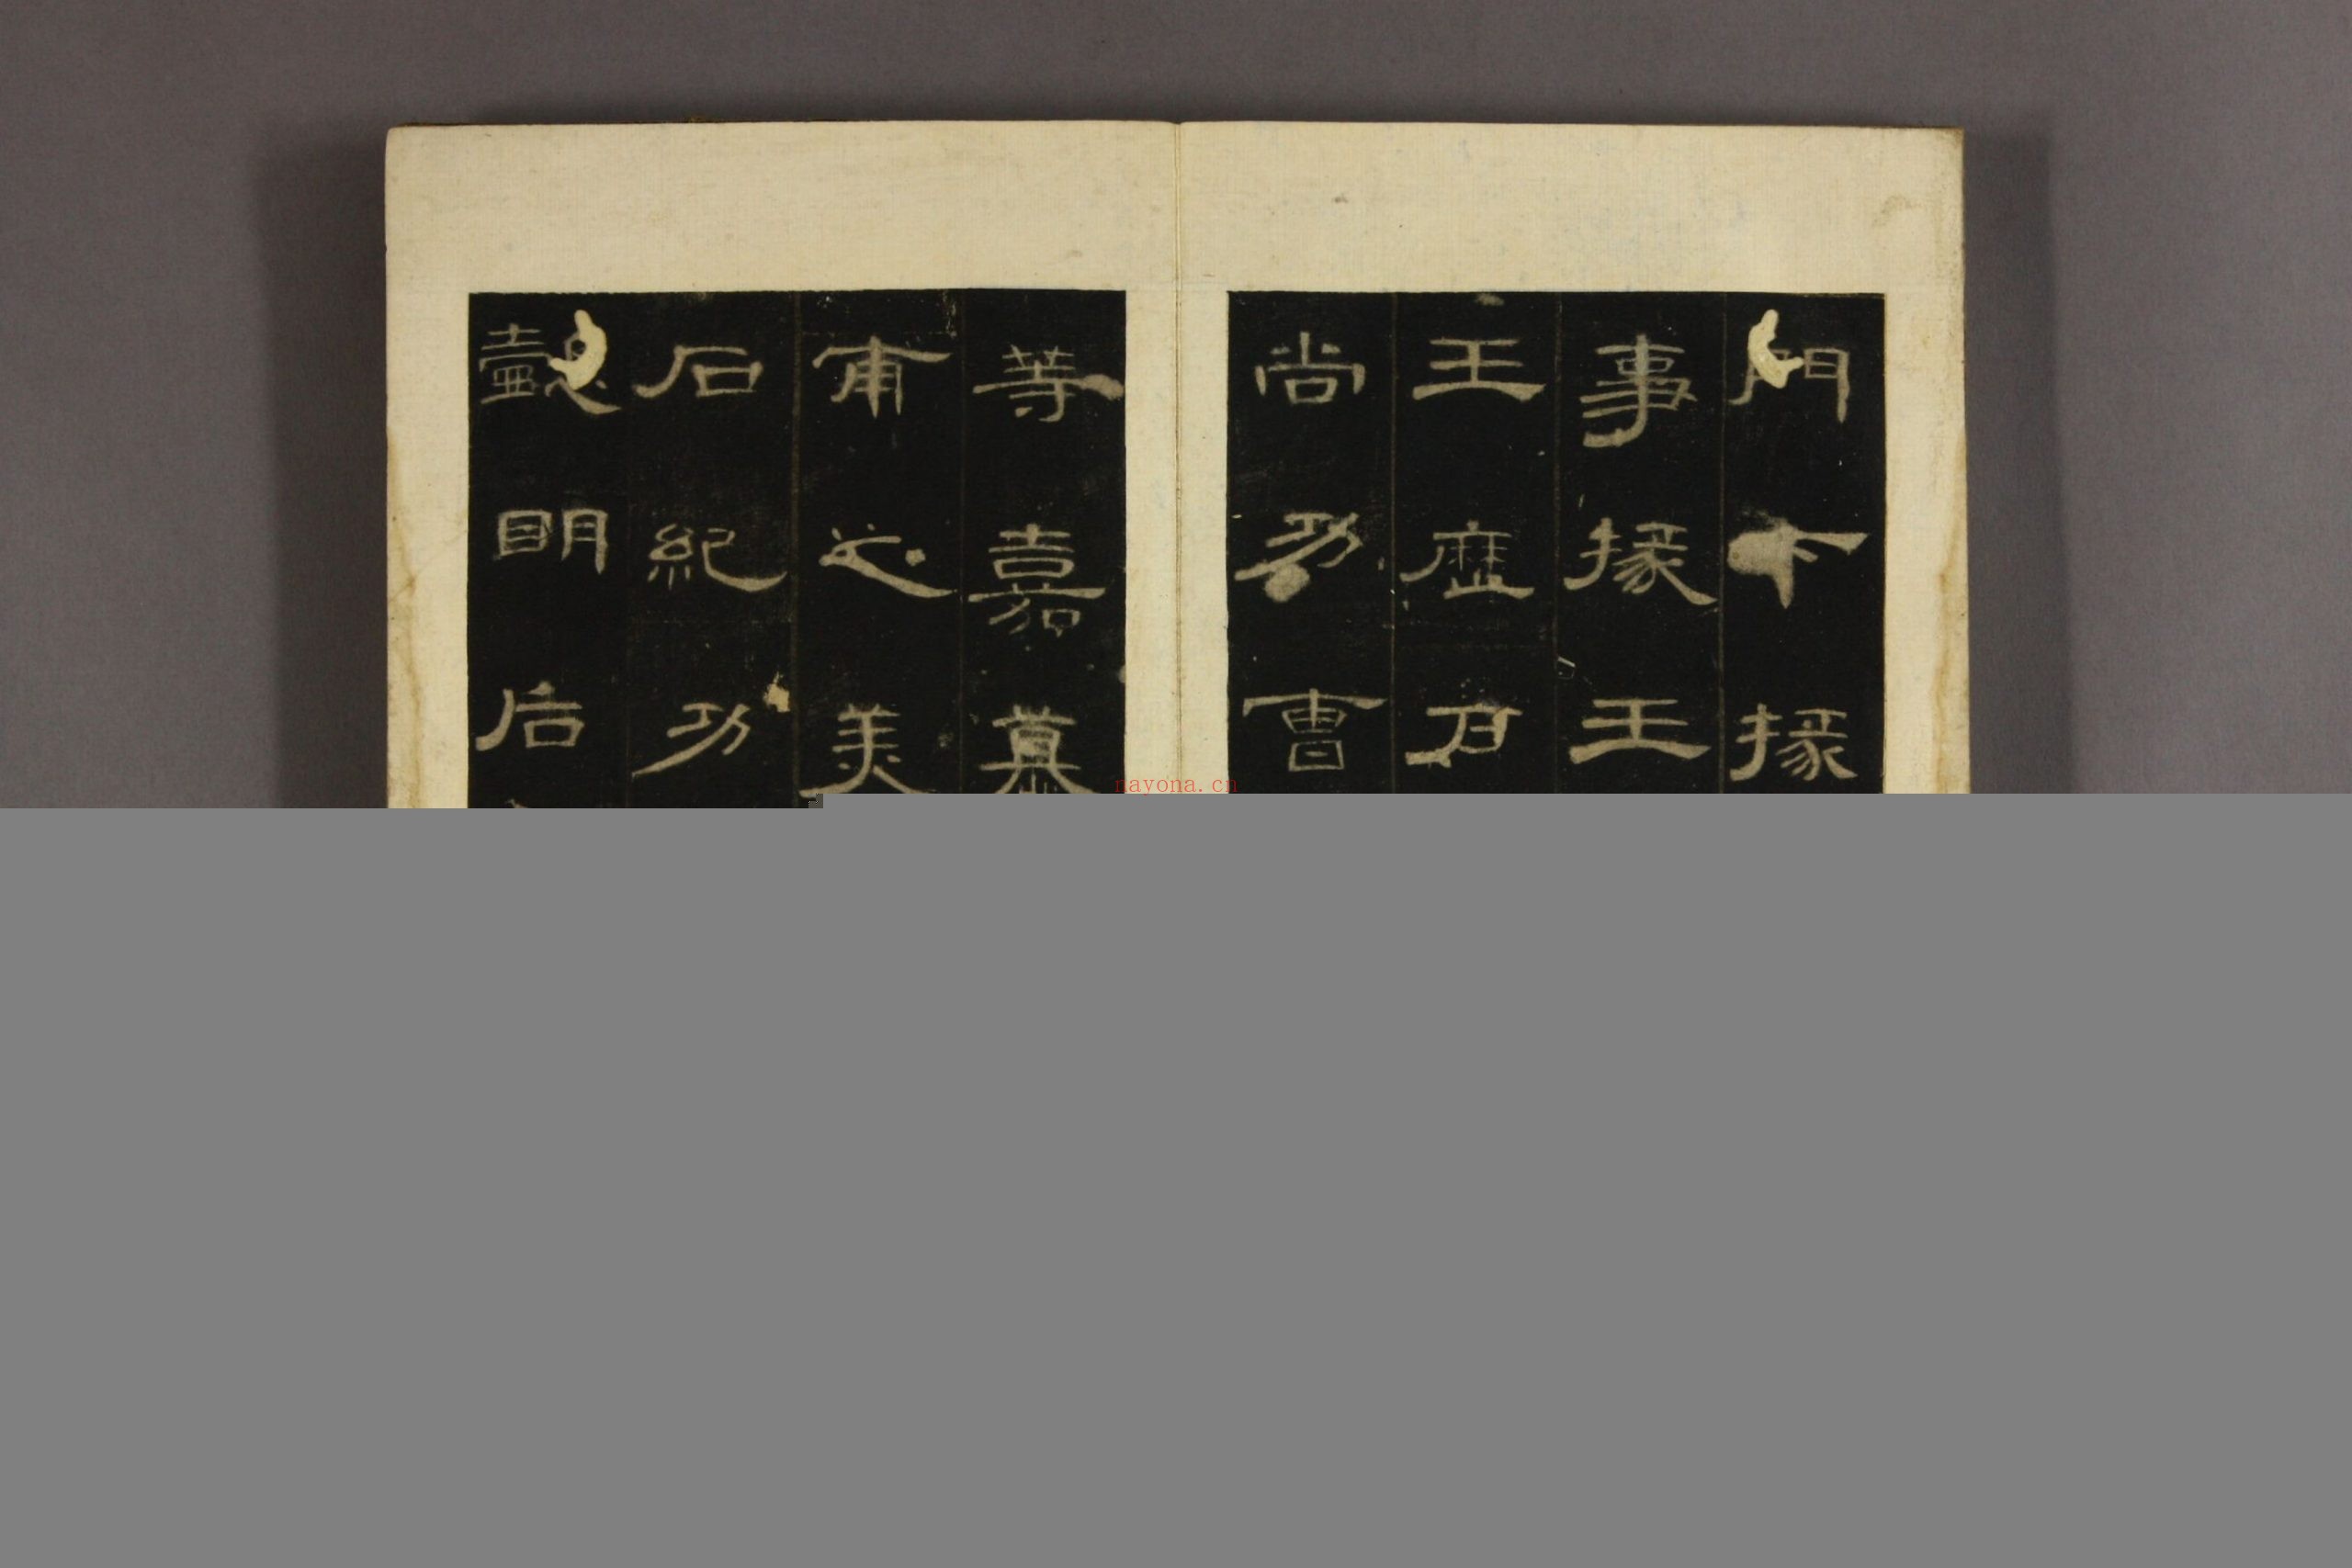 門下掾
事掾王
王歷戶
尚功曹
等嘉慕
甫之美
石紀功
懿明后
nayona.cn